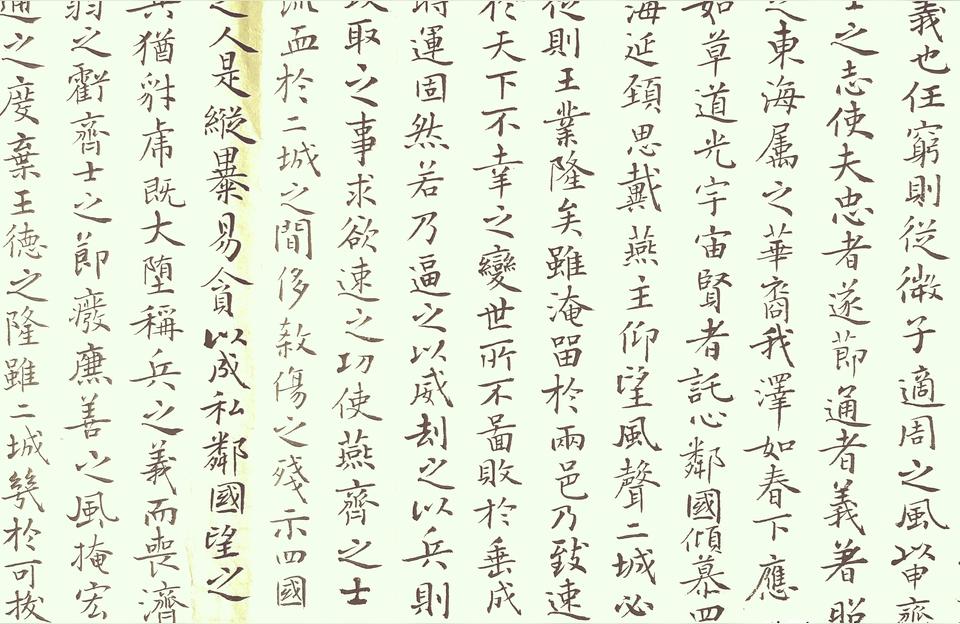 義也任窮則從微子適周之風以申齊
士之志使夫忠者遂節通者義著昭
之東海屬之華裔我澤如春下應
如草道光宇宙賢者託心鄰國傾慕四
海延頸思戴燕主仰望風聲二城必
從則王業隆矣雖淹留於兩邑乃致速
於天下不幸之變世所不啚敗於垂成
時運固然若乃逼之以威劫之以兵則
攻取之事求欲速之功使燕齊之士
流血於二城之間侈殺傷之殘示四國
之人是縱暴易貪以成私鄰國望之
其猶豺虎既大墮稱兵之義而喪濟
弱之虧齊士之節癈廉善之風掩宏
通之度棄王德之隆雖二城幾於可拔